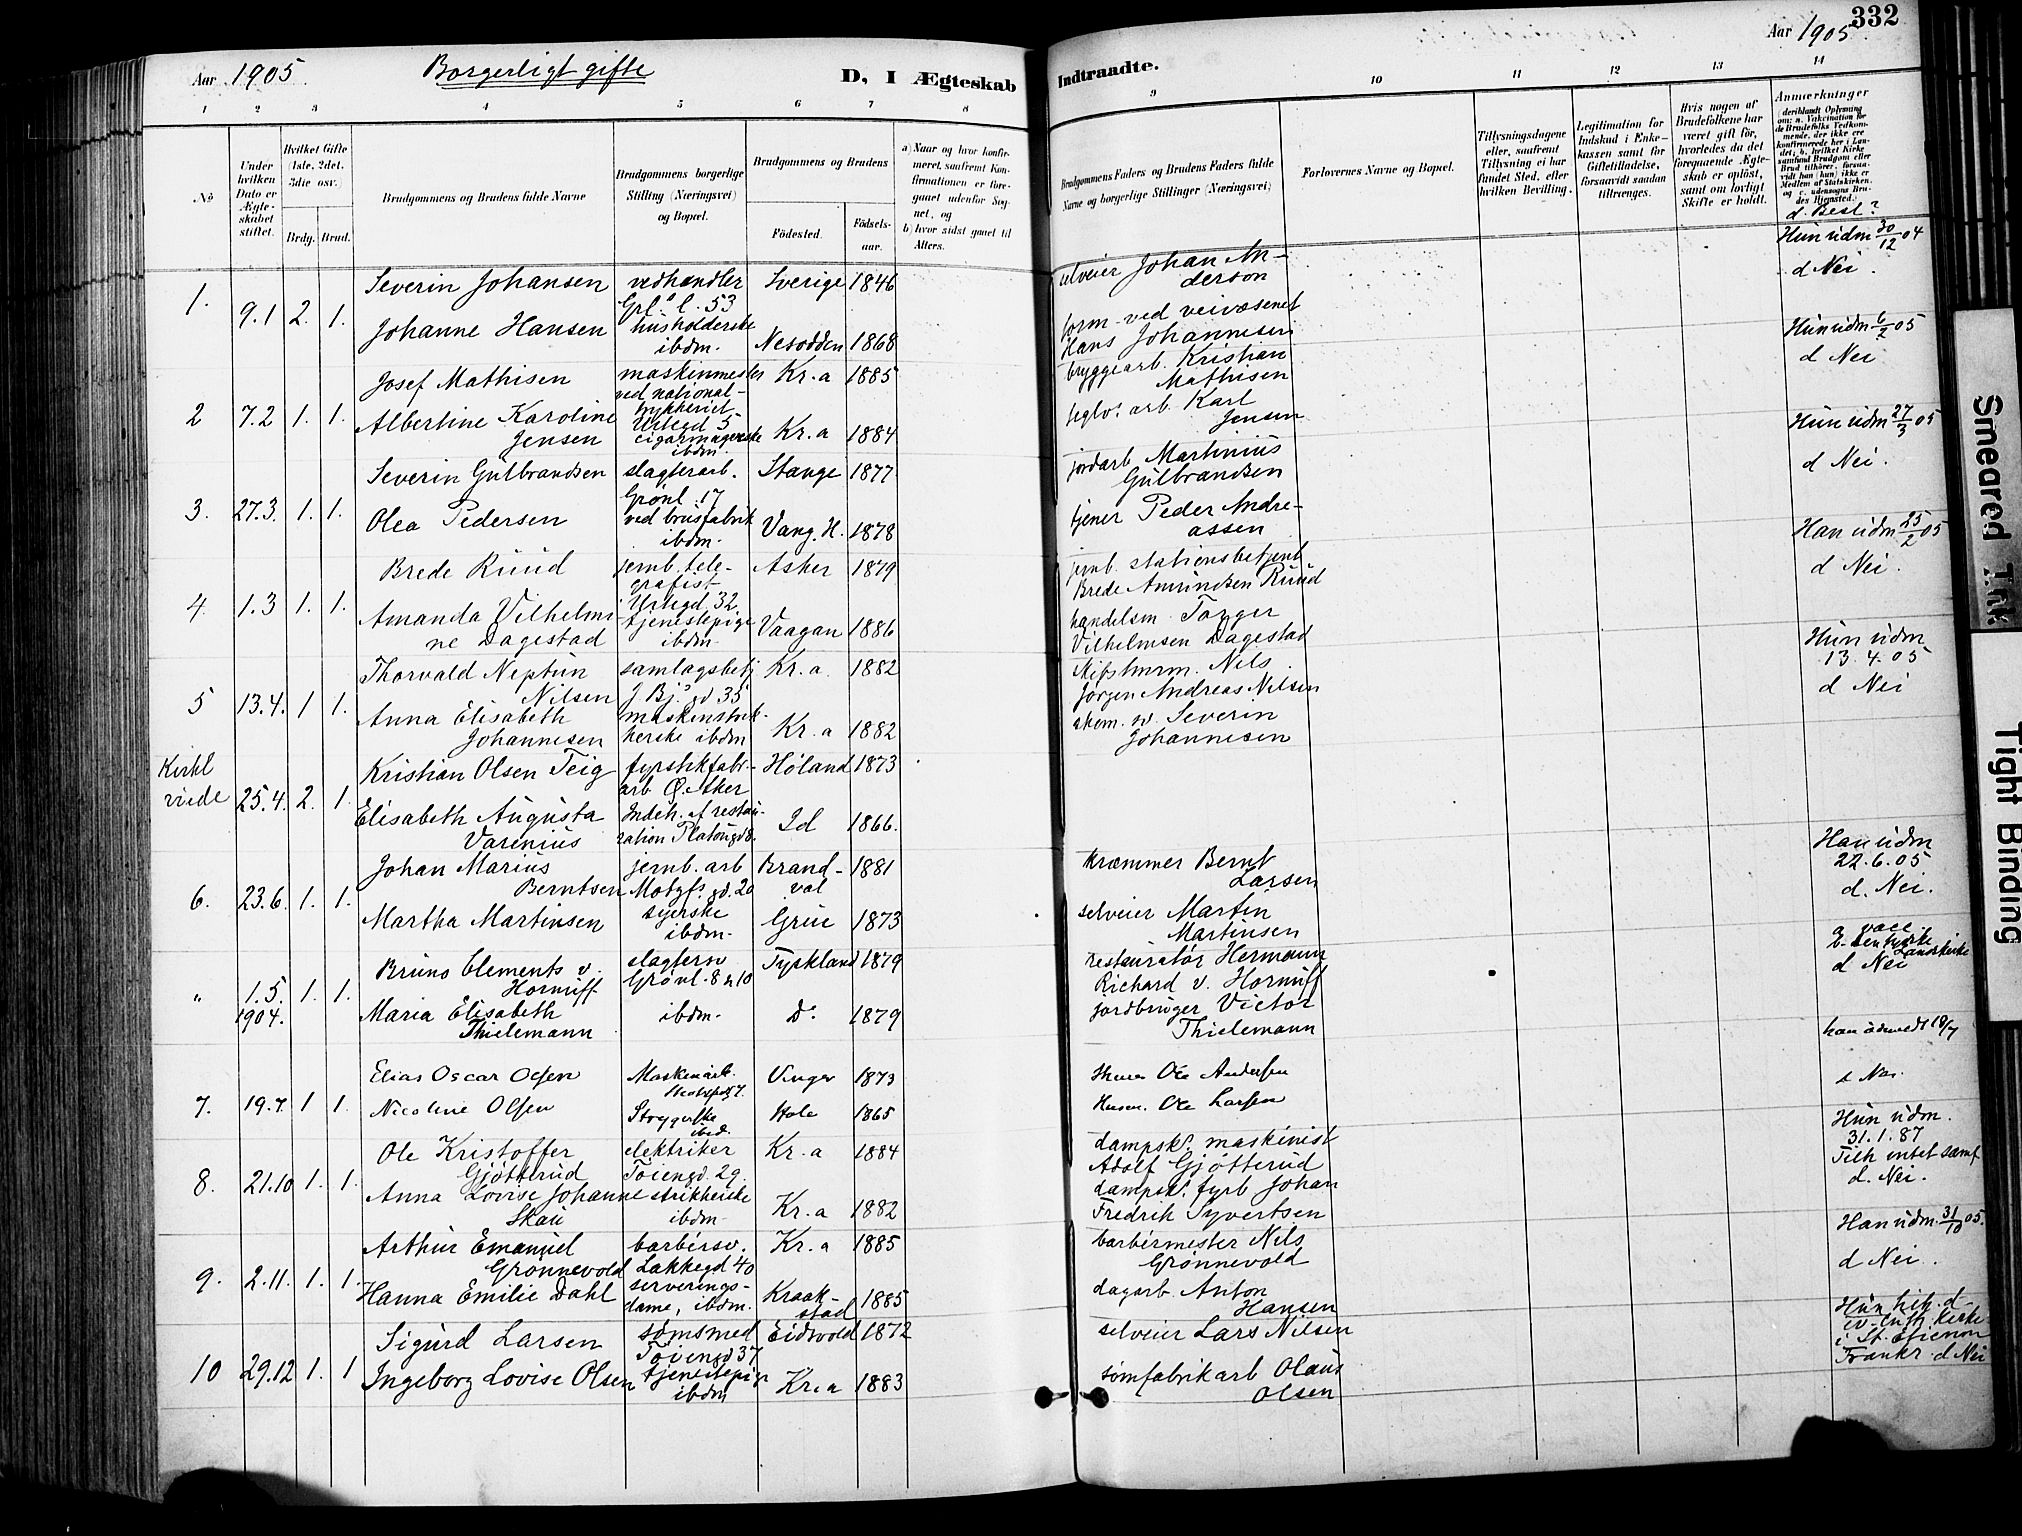 Aar 1905
Borgerligt gifte
D, I Ægteskab
Indtraadte.
Aar 1905
332
1 2 3 4 5 6 7 8 9 10 11 12 13 14
No
Under hvilken Dato er Ægteskabet stiftet.
Hvilket Gifte (1ste, 2det, 3die osv.)
Brdg. Brud.
Brudgommens og Brudens fulde Navne
Brudgommens borgerlige Stilling (Næringsvei) og Bopæl.
Brudgommens og Brudens
Födested.
Födselsaar.
a) Naar og hvor konfirmeret, saafremt Konfirmationen er foregaaet udenfor Sognet, og
b) hvor sidst gaaet til Alters.
Brudgommens Faders og Brudens Faders fulde Navne og borgerlige Stillinger (Næringsvei)
Forlovernes Navne og Bopæl.
Tillysningsdagene eller, saafremt Tillysning ei har fundet Sted, efter hvilken Bevilling.
Legitimation for Indskud i Enkekassen samt for Giftetilladelse, forsaavidt saadan tiltrænges.
Hvis nogen af Brudefolkene har været gift för, hvorledes da det foregaaende Ægteskab er oplöst, samt om lovligt Skifte er holdt.
Anmærkninger
d. Besl?
1. 9.1 2. 1.
Severin Johansen vedhandler Sverige 1846
Grl. l. 53
Johanne Hansen husholderske
ibdm. Nesodden 1868
selveier Johan Anderson
form. ved veivæsenet
Hans Johannesen
Hun udm 30/12 04
d Nei.
2 7.2 1. 1.
Josef Mathisen maskinmester Kr.a 1885
ved nationaltrykkeriet
Urtegd 5
Albertine Karoline
Jensen cigarmagerske Kr.a 1884
ibdm.
bryggearb. Kristian
Mathisen
teglv. arb. Karl
Jensen
Hun udm 6/2 05
d Nei
3. 27.3. 1. 1.
Severin Gulbrandsen slagterarb. Stange 1877
Grønl. 17
Olea Pedersen ved brusfabrik
ibdm. Vang. H. 1878
jordarb Martinius
Gulbrandsen
tjener Peder Andreassen
Hun udm 27/3 05
d Nei.
4. 1.3 1. 1.
Brede Ruud jernb. telegrafist Asker 1879
Urtegd. 32
Amanda Vilhelmine Dagestad tjenestepige
ibdm Vaagan 1886
jernb. stationsbetjent
Brede Amundsen Ruud
handelsm. Torger
Vilhelmsen Dagestad
Han udm 25/2 05
d Nei.
5 13.4. 1 1.
Thorvald Neptun
Nilsen samlagsbetj Kr.a. 1882
J. Bj. gd 35
Anna Elisabeth
Johannesen maskinstrikkerske ibdm Kr.a 1882
skibstmrm. Nils
Jørgen Andreas Nilsen
skom. sv. Severin
Johannesen
Hun udm
13.4.05
d Nei
Kirkl viede 25.4. 2. 1.
Kristian Olsen Teig fyrstikfabr. Høland 1873
arb Ø. Aker
Elisabeth Augusta
Varenius Indeh. af restauration Platougd 8. Id 1866.
6. 23.6. 1. 1.
Johan Marius
Berntsen jernb. arb Brandval 1881
Motzf. gd. 20
Martha Martinsen syerske
ibdm. Grue 1873
kræmmer Bernt
Larsen
selveier Martin
Martinsen
Han udm
22.6.05
d. Nei.
" 1.5. 1904. 1. 1.
Bruno Clements v.
Hornuff slagtersv Tyskland 1879
Grønl. 8 n 10
Maria Elisabeth
Thielemann ibdm. Do 1879
restauratør Hermann
Richard v. Hornuff
jordbruger Victor
Thielemann
a. vacc
b. den tyske Landskirke
d Nei
7. 19.7. 1 1.
Elias Oscar Olsen Maskinarb. Vinger 1873
Nicoline Olsen Stryggerske
ibid. Hole 1865
Ole Andersen
Husm. Ole Larsen
han udmeldt 18/7
d Nei.
8. 21.10 1. 1.
Ole Kristoffer
Gjøtterud elektriker Kr.a 1884
Tøiengd. 29.
Anna Lovise Johanne
Skau strikkerske
ibdm Kr.a 1882
dampsk. maskinist
Adolf Gjøtterud
dampsk. fyrb Johan
Fredrik Syvertsen
Hun udm.
31.1.87
Tilh intet samf
d. Nei.
9. 2.11. 1. 1.
Arthur Emanuel
Grønnevold barbersv. Kr.a 1885
Lakkegd 40
Hanna Emilie Dahl serveringsdame, ibdm. Kraakstad 1885
barbermester Nils
Grønnevold
dagarb. Anton
Hansen
Han udm. 31/10 05.
d Nei.
10 29.12 1. 1
Sigurd Larsen sømsmed Eidsvold 1872
Tøiengd 37
Ingeborg Lovise Olsen tjenestepige
ibdm Kr.a 1883
selveier Lars Nilsen
sømfabrikarb Olaus
Olsen
Hun tilh. d.
ev-luth. kirke
i St. Etienne
Frankr. d Nei
Smeared Ink
Tight Binding